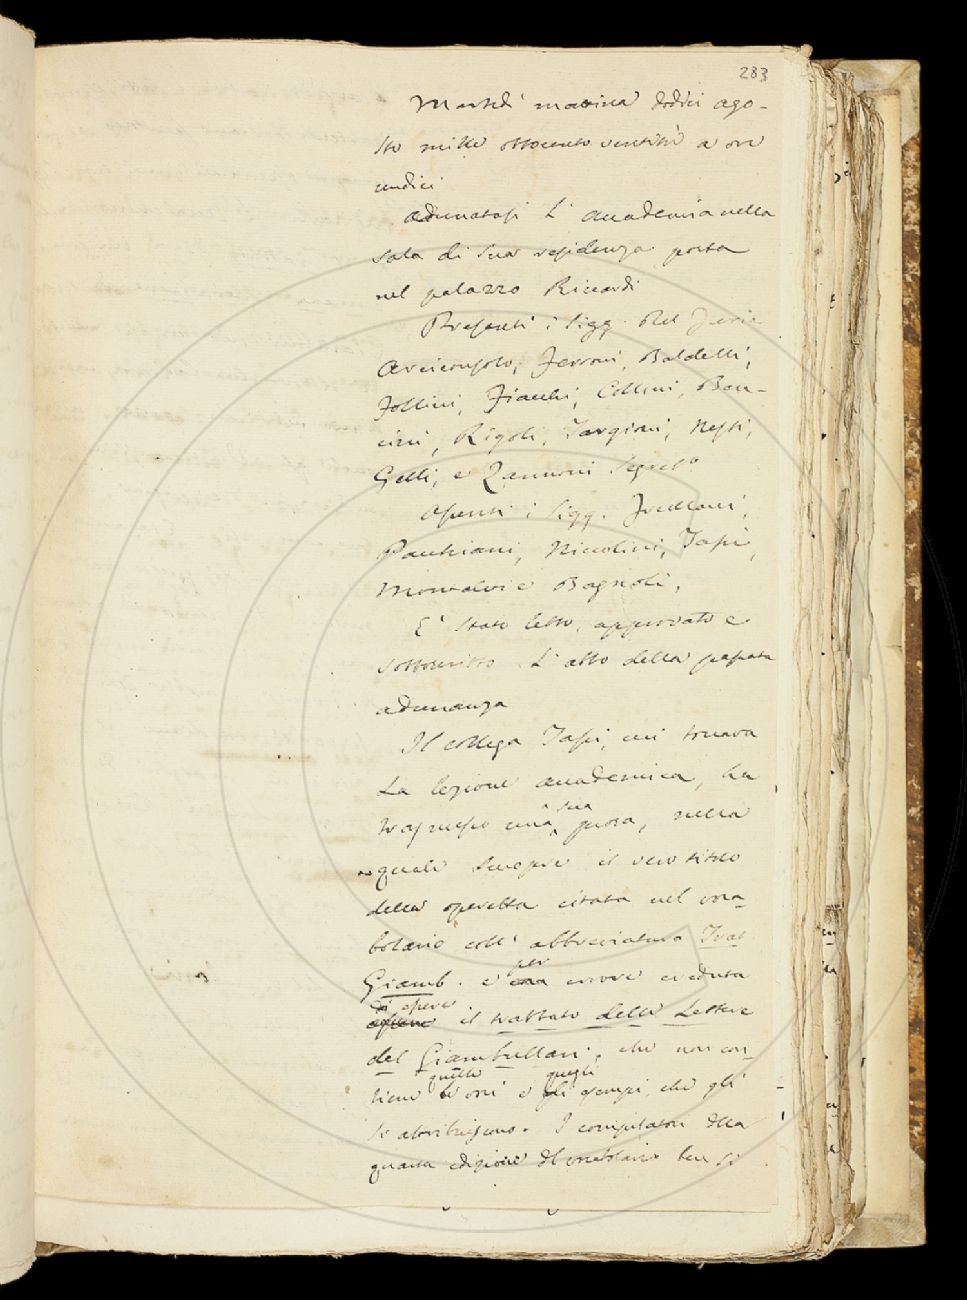 283
Martedì mattina dodici ago-
sto mille ottocento ventitrè a ore
undici
Adunatasi l'Accademia nella
sala di sua residenza posta
nel palazzo Riccardi
Presenti i Sigg.
Arciconsolo, Ferroni, Baldelli,
Follini, Fiacchi, Collini, Ben-
cini, Rigoli, Targioni, Nesti,
Gelli, e Zannoni Segret.º
Assenti i Sigg. Frullani,
Pacchiani, Niccolini, Tassi,
Montalvi e Bagnoli.
E' stato letto, approvato e
sottoscritto l'atto della passata
adunanza
Il collega Tassi, cui toccava
la lezione accademica, ha
trasmesso una sua prosa, nella
quale scuopre il vero titolo
della operetta citata nel voca-
bolario coll'abbreviatura Trat.
Giamb. e per errore creduta
di essere il trattato delle Lettere
del Giambullari, che non con-
tiene quelle voci e quegli esempi, che gli
si attribuiscono. I compilatori della
quarta edizione del vocabolario ben si